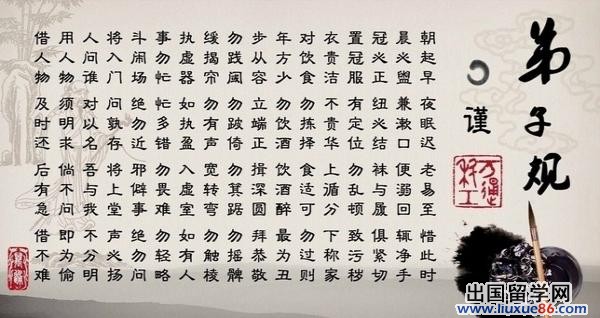 弟子规
谨
朝起早 夜眠迟 老易至 惜此时
晨必盥 兼漱口 便溺回 辄净手
冠必正 纽必结 袜与履 俱紧切
置冠服 有定位 勿乱顿 致污秽
衣贵洁 不贵华 上循分 下称家
对饮食 勿拣择 食适可 勿过则
年方少 勿饮酒 饮酒醉 最为丑
步从容 立端正 揖深圆 拜恭敬
勿践阈 勿跛倚 勿箕踞 勿摇髀
缓揭帘 勿有声 宽转弯 勿触棱
执虚器 如执盈 入虚室 如有人
事勿忙 忙多错 勿畏难 勿轻略
斗闹场 绝勿近 邪僻事 绝勿问
将入门 问孰存 将上堂 声必扬
人问谁 对以名 吾与我 不分明
用人物 须明求 倘不问 即为偷
借人物 及时还 后有急 借不难
出国留学网
www.liuxue86.com